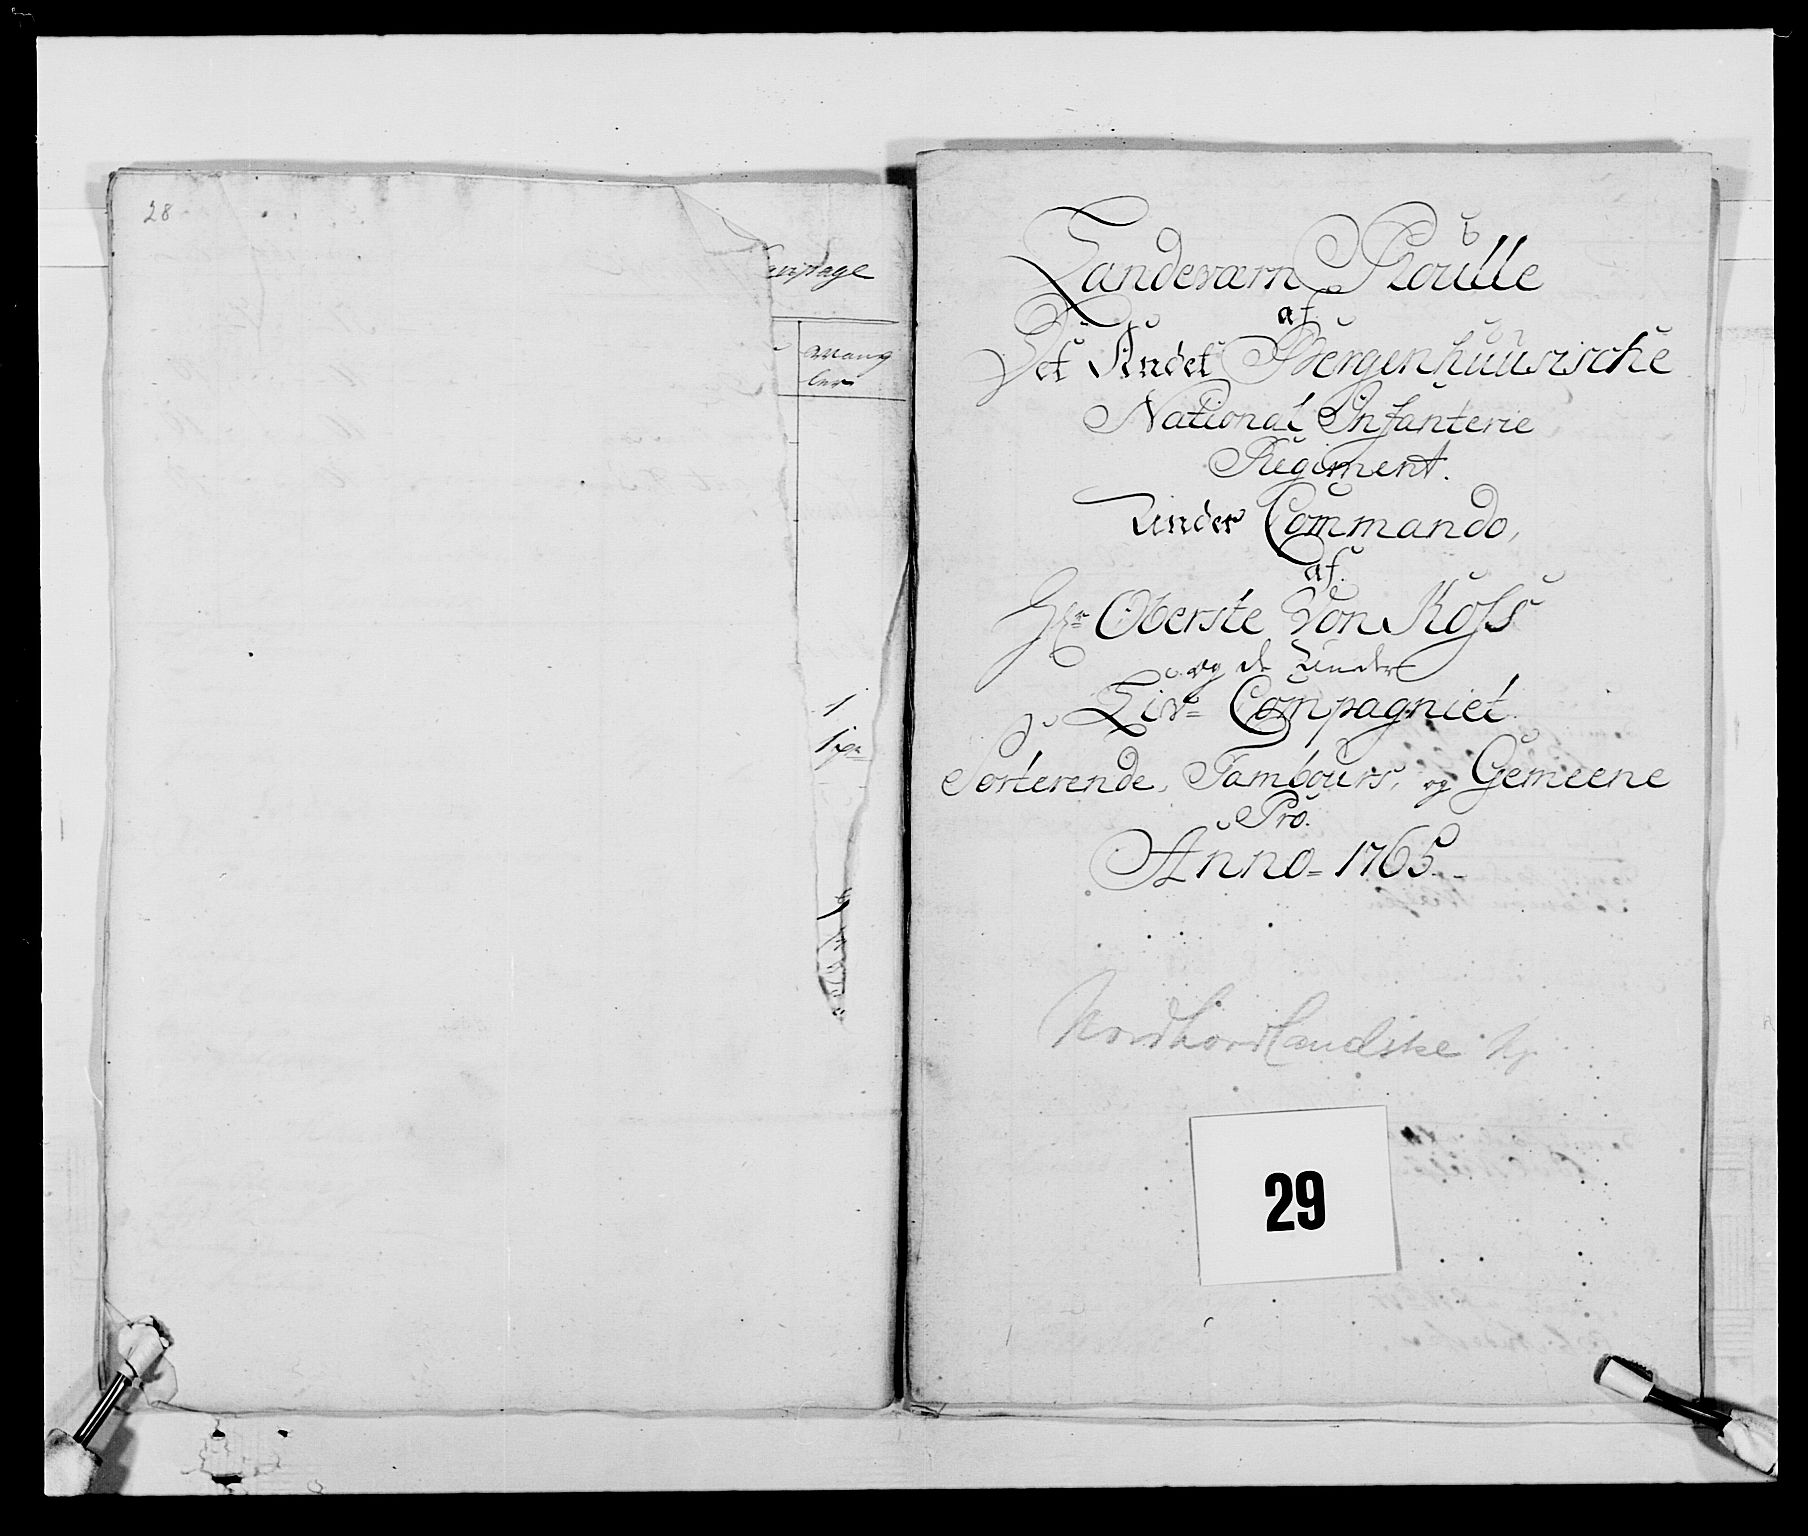 28
Mang
ler
1
Landeværn Roulle
af
Det Andet Bergenhuusische
National Infanterie
Regiment.
Under Commando,
af.
Hr Oberste Von Ross
og de Under
Liv= Compagniet
Sorterende, Tambours, og Gemeene
Pro.
Anno= 1765.
Nordhordlandske
29